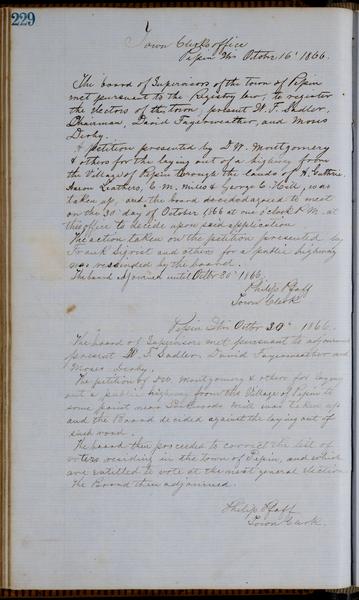 229
Town Clerks office
Pepin Octobr 16th 1866.
The board of Supervisors of the town of Pepin
met pursuant to the Registry law, to register
the electors of the town, present W. T. Sadler,
Chairman, David Fayerweather, and Moses
Derby.
A petition presented by I W. Montgomery
& others for the laying out of a highway from
the Village of Pepin through the lands of H. Guthrie
Aaron Leathers, C. M. Miles & George C. Hall, was
taken up, and the board decided agreed to meet
on the 30th day of October 1866 at one o'clock P. M. at
this office to decide upon said application.
The action taken on the petition presented by
Frank Sigrist and others for a public highway
was rescinded by the board.
The board adjourned until Octbr 30th 1866.
Philip Pfaff
Town Clerk
Pepin Octbr 30th 1866.
The board of Supervisors met pursuant to adjournment
present W. T. Sadler, David Fayerweather and
Moses Derby.
The petition of I W. Montgomery & others for laying
out a public highway from the Village of Pepin to
some point near mill was taken up
and the Board decided against the laying out of
such road.
The board then proceeded to correct the list of
voters residing in the town of Pepin, and which
are entitled to vote at the next general election
The Board then adjourned.
Philip Pfaff
Town Clerk.